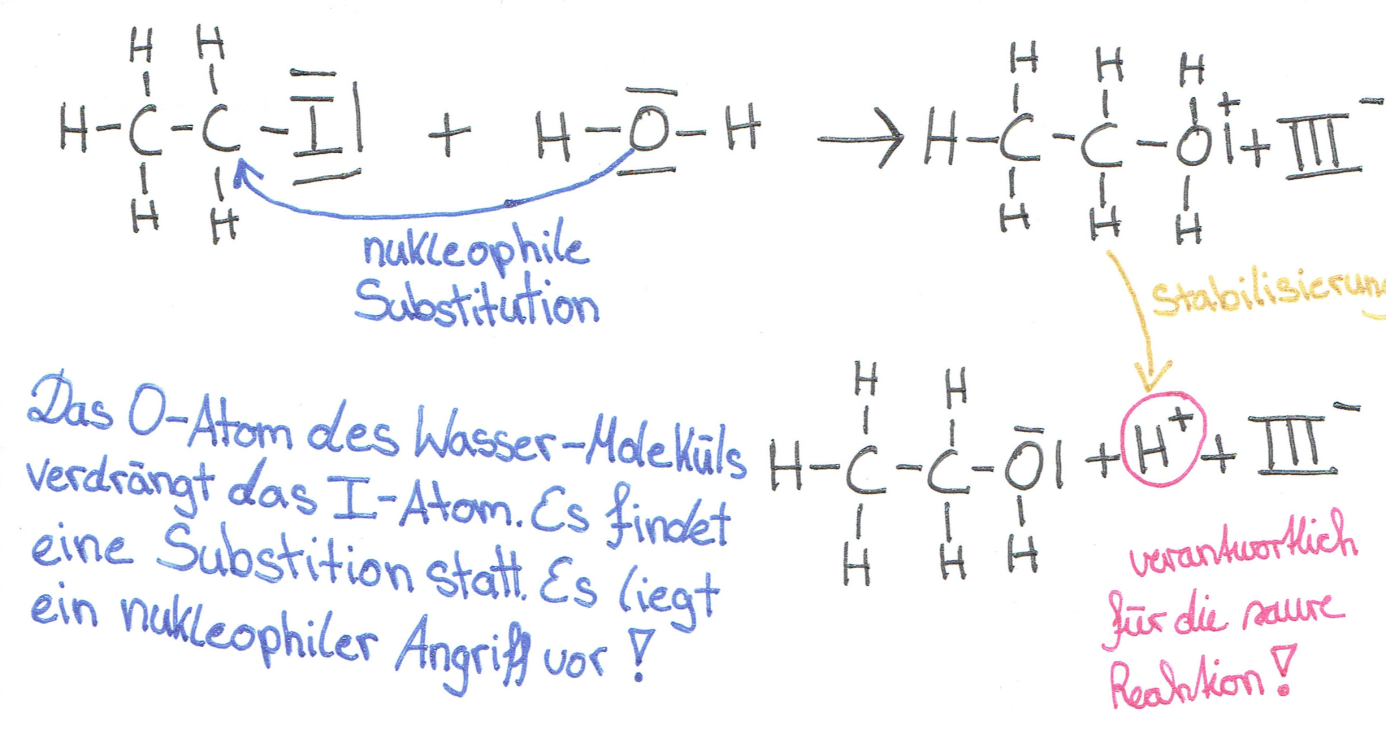 H H H H H
H-C-C-I| + H-O-H → H-C-C-O|⁺ + |I|⁻
H H H H H
nukleophile
Substitution
Stabilisierung
H H
H-C-C-O| + H⁺ + |I|⁻
H H H
Das O-Atom des Wasser-Moleküls
verdrängt das I-Atom. Es findet
eine Substition statt. Es liegt
ein nukleophiler Angriff vor!
verantwortlich
für die saure
Reaktion!